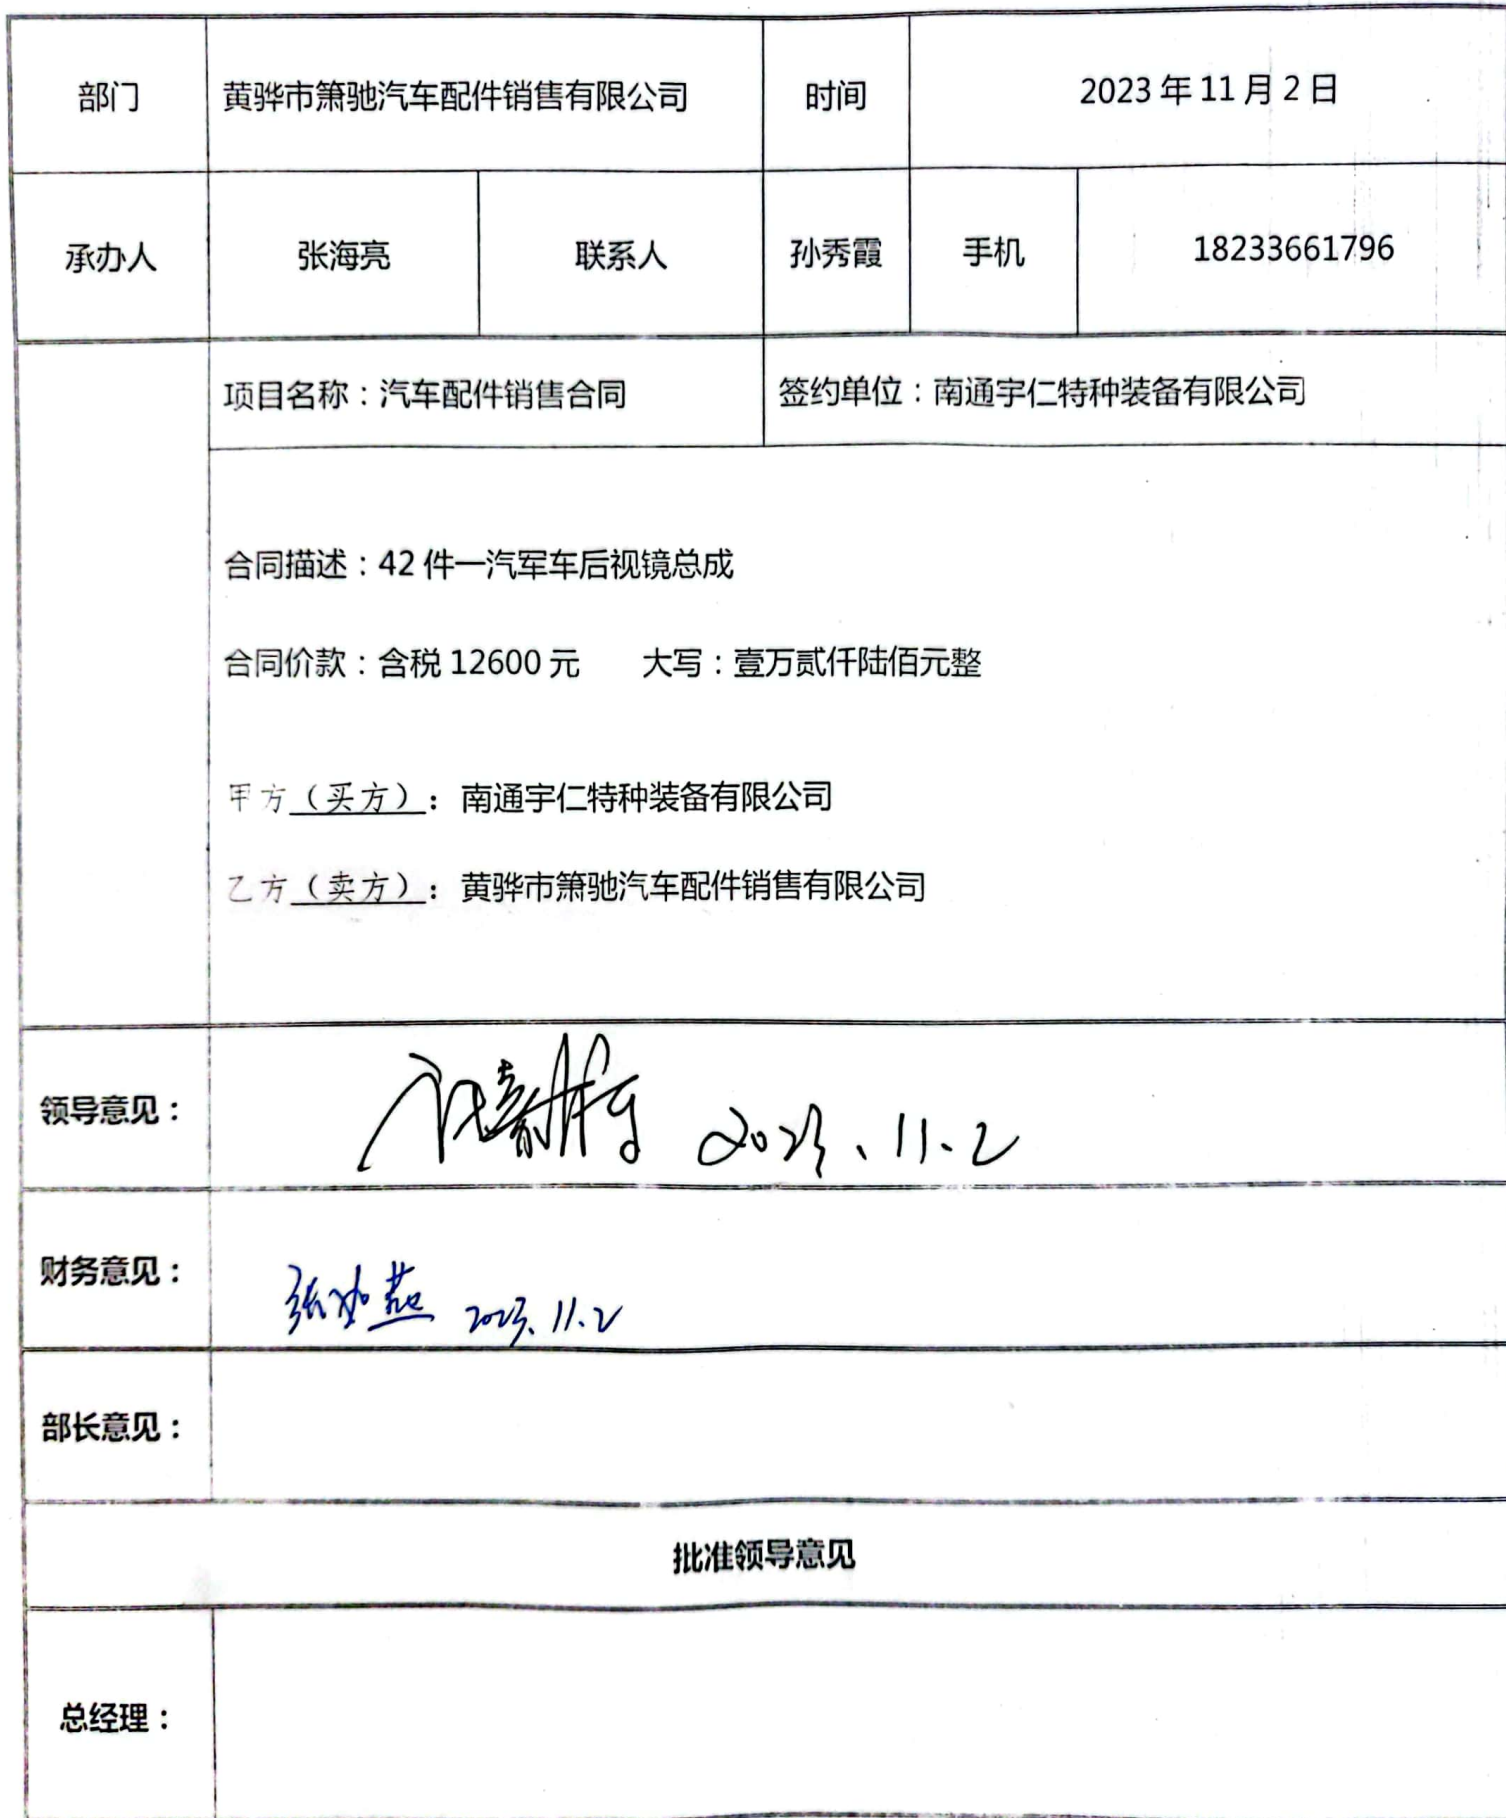 部门 黄骅市箫驰汽车配件销售有限公司 时间 2023年11月2日
承办人 张海亮 联系人 孙秀霞 手机 18233661796
项目名称：汽车配件销售合同 签约单位：南通宇仁特种装备有限公司
合同描述：42件一汽军车后视镜总成
合同价款：含税12600元 大写：壹万贰仟陆佰元整
甲方（买方）：南通宇仁特种装备有限公司
乙方（卖方）：黄骅市箫驰汽车配件销售有限公司
领导意见： 2023.11.2
财务意见： 2023.11.2
部长意见：
批准领导意见
总经理：